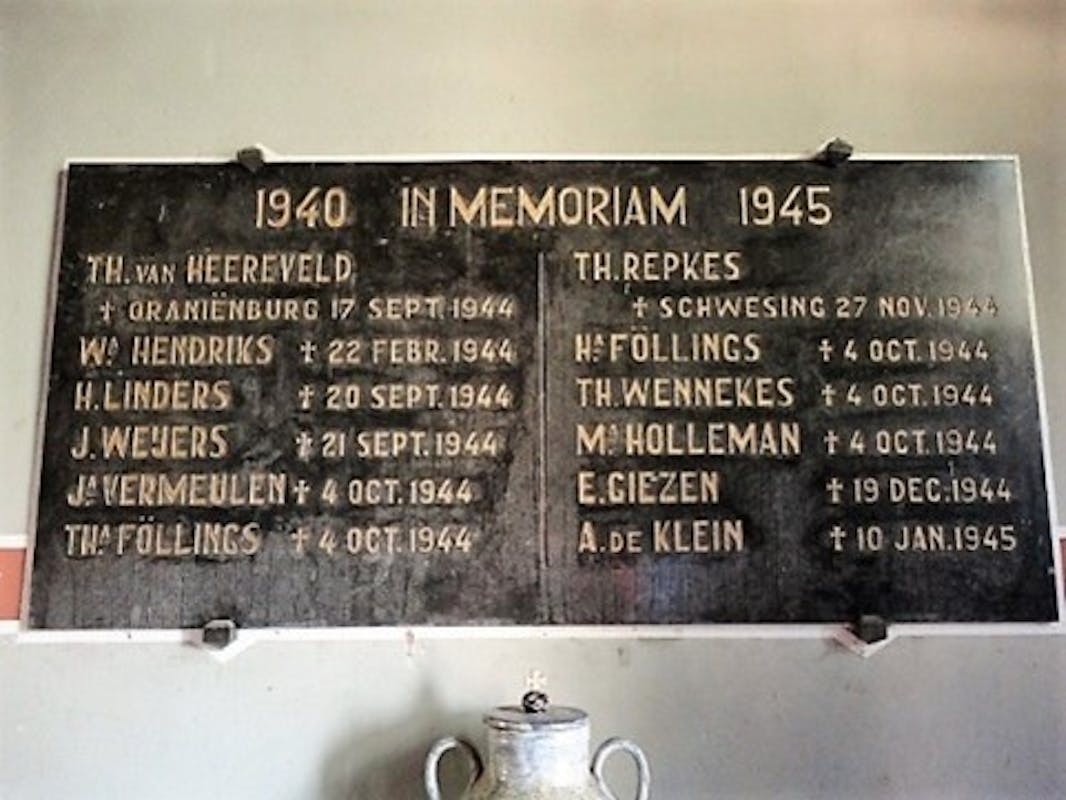 1940 IN MEMORIAM 1945
TH. VAN HEEREVELD
† ORANIËNBURG 17 SEPT. 1944
Wᴬ HENDRIKS † 22 FEBR. 1944
H. LINDERS † 20 SEPT. 1944
J. WEIJERS † 21 SEPT. 1944
Jᴬ VERMEULEN † 4 OCT. 1944
THᴬ FÖLLINGS † 4 OCT. 1944
TH. REPKES
† SCHWESING 27 NOV. 1944
Hᴬ FÖLLINGS † 4 OCT. 1944
TH. WENNEKES † 4 OCT. 1944
Mᴬ HOLLEMAN † 4 OCT. 1944
E. GIEZEN † 19 DEC. 1944
A. DE KLEIN † 10 JAN. 1945